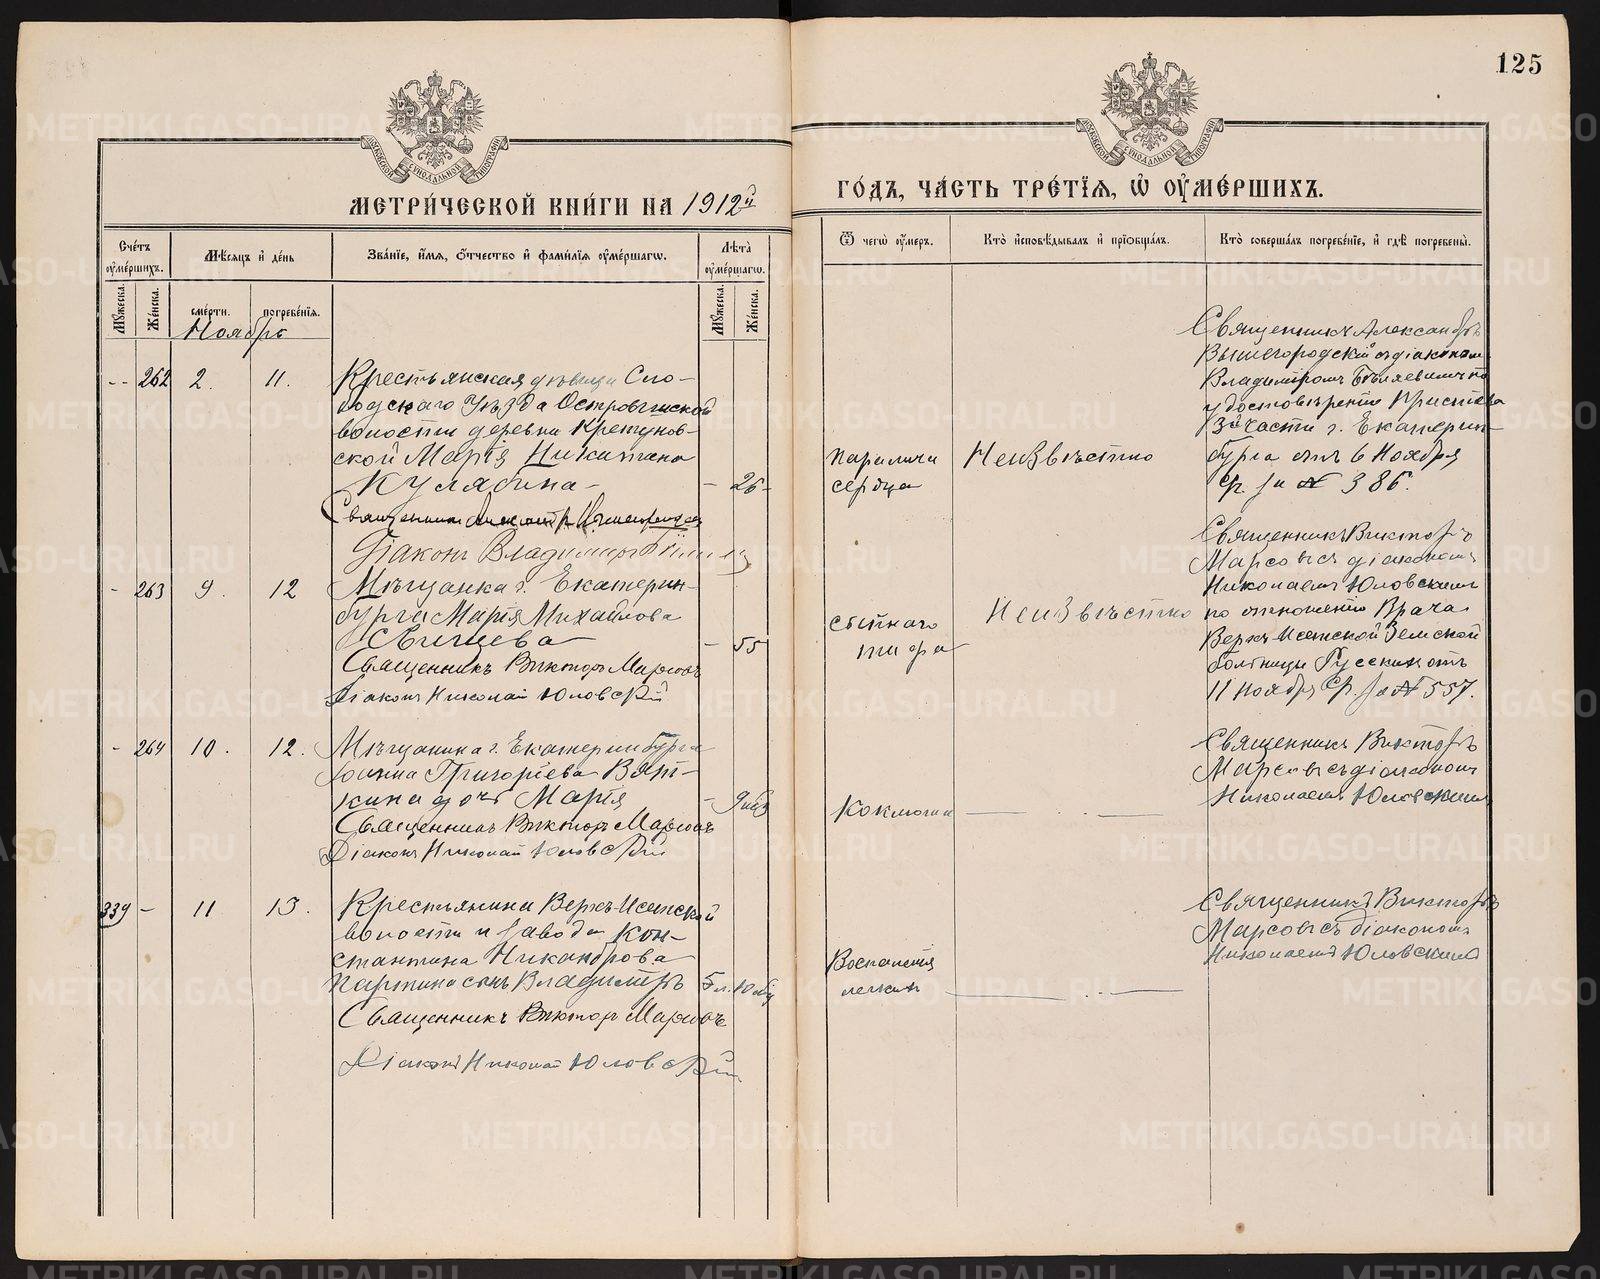 125
МЕТРИ́ЧЕСКОЙ КНИ́ГИ НА 1912й
ГО́ДЪ, ЧА́СТЬ ТРЕ́ТЇѦ, Ѡ҆ ОУ҆МЕ́РШИХЪ.
Сче́тъ оу҆ме́ршихъ.
Мꙋ́жеска.
Же́нска.
Мѣ́сѧцъ и҆ де́нь
сме́рти.
погребе́нїѧ.
Зва́нїе, и҆́мѧ, ѻ҆́тчество и҆ фами́лїѧ оу҆ме́ршагѡ.
Лѣ́та оу҆ме́ршагѡ.
Мꙋ́жеска.
Же́нска.
Ѿ чегѡ̀ оу҆́меръ.
Кто̀ и҆сповѣ́дывалъ и҆ прїѡбща́лъ.
Кто̀ соверша́лъ погребе́нїе, и҆ гдѣ̀ погребены̀.
Ноябрь
-- 262 2. 11.
Крестьянская дѣвица Сло-
бодскаго Уѣзда Островской
волости деревни
ской Марія Никитина
Кулябина - - 26-
Священникъ Александръ Вышегородскій
Діаконъ Владиміръ
параличи
сердца
Неизвѣстно
Священникъ Александръ
Вышегородскій съ діакономъ
Владиміромъ Бѣляевымъ по
удостовѣренію Пристава
3й части г. Екатерин-
бурга отъ 6 Ноября
с. г. за № 386.
- 263 9. 12
Мѣщанка г. Екатерин-
бурга Марія Михайлова
Свищева - 55
Священникъ Викторъ Марсовъ
Діаконъ Николай Юловскій
сыпного
тифа
Неизвѣстно
Священникъ Викторъ
Марсовъ съ діакономъ
Николаемъ Юловскимъ
по отношенію Врача
Верхъ-Исетской Земской
больницы Русскихъ отъ
11 Ноября с. г. за № 557.
- 264 10. 12.
Мѣщанина г. Екатеринбурга
Іоанна Григоріева Вят-
кина дочь Марія - 9 мѣс
Священникъ Викторъ Марсовъ
Діаконъ Николай Юловскій
Коклюша
Священникъ Викторъ
Марсовъ съ діакономъ
Николаемъ Юловскимъ
339 - 11 13.
Крестьянина Верхъ-Исетской
волости и завода Кон-
стантина Никандрова
Партина сынъ Владиміръ 5 л. 10 мѣс
Священникъ Викторъ Марсовъ
Діаконъ Николай Юловскій
Воспаленія
легкихъ
Священникъ Викторъ
Марсовъ съ діакономъ
Николаемъ Юловскимъ
METRIKI.GASO-URAL.RU